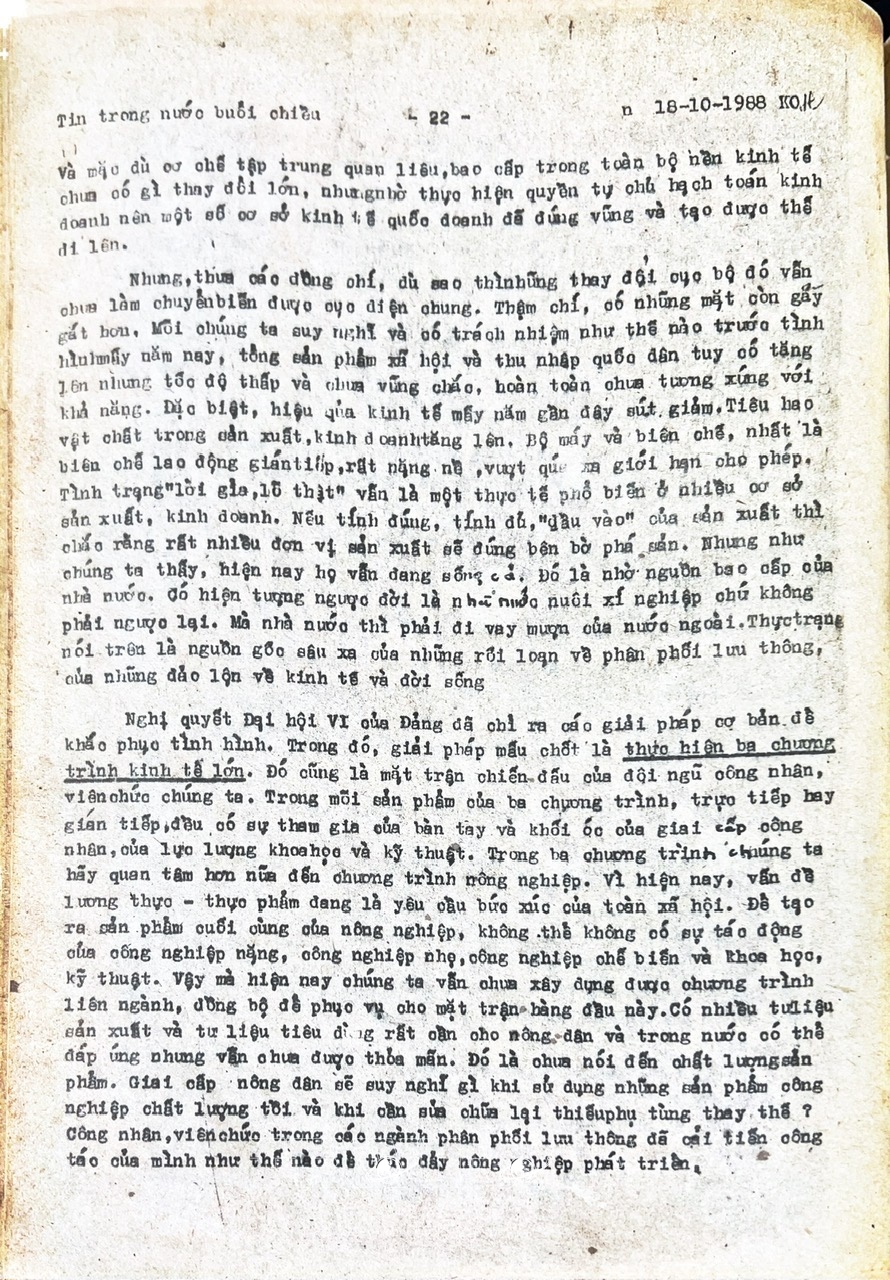 Tin trong nước buổi chiều - 22 - n 18-10-1988 KO
và mặc dù cơ chế tập trung quan liêu,bao cấp trong toàn bộ nền kinh tế
chưa có gì thay đổi lớn, nhưngnhờ thực hiện quyền tự chủ hạch toán kinh
doanh nên một số cơ sở kinh tế quốc doanh đã đứng vững và tạo được thế
đi lên.
Nhưng,thưa các đồng chí, dù sao thìnhững thay đổi cục bộ đó vẫn
chưa làm chuyểnbiến được cục diện chung. Thậm chí, có những mặt còn gây
gắt hơn. Mỗi chúng ta suy nghĩ và có trách nhiệm như thế nào trước tình
hìnhmấy năm nay, tổng sản phẩm xã hội và thu nhập quốc dân tuy có tăng
lên nhưng tốc độ thấp và chưa vững chắc, hoàn toàn chưa tương xứng với
khả năng. Đặc biệt, hiệu qủa kinh tế mấy năm gần đây sút giảm.Tiêu hao
vật chất trong sản xuất,kinh doanhtăng lên. Bộ máy và biên chế, nhất là
biên chế lao động giántiếp,rất nặng nề ,vượt quá xa giới hạn cho phép.
Tình trạng"lời giả,lỗ thật" vẫn là một thực tế phổ biến ở nhiều cơ sở
sản xuất, kinh doanh. Nếu tính đúng, tính đủ,"đầu vào" của sản xuất thì
chắc rằng rất nhiều đơn vị sản xuất sẽ đứng bên bờ phá sản. Nhưng như
chúng ta thấy, hiện nay họ vẫn đang sống cả. Đó là nhờ nguồn bao cấp của
nhà nước. Có hiện tượng ngược đời là nhà nước nuôi xí nghiệp chứ không
phải ngược lại. Mà nhà nước thì phải đi vay mượn của nước ngoài.Thựctrạng
nói trên là nguồn gốc sâu xa của những rối loạn về phân phối lưu thông,
của những đảo lộn về kinh tế và đời sống
Nghị quyết Đại hội VI của Đảng đã chỉ ra các giải pháp cơ bản để
khắc phục tình hình. Trong đó, giải pháp mấu chốt là thực hiện ba chương
trình kinh tế lớn. Đó cũng là mặt trận chiến đấu của đội ngũ công nhân,
viênchức chúng ta. Trong mỗi sản phẩm của ba chương trình, trực tiếp hay
gián tiếp,đều có sự tham gia của bàn tay và khối óc của giai cấp công
nhân,của lực lượng khoahọc và kỹ thuật. Trong ba chương trình chúng ta
hãy quan tâm hơn nữa đến chương trình nông nghiệp. Vì hiện nay, vấn đề
lương thực - thực phẩm đang là yêu cầu bức xúc của toàn xã hội. Để tạo
ra sản phẩm cuối cùng của nông nghiệp, không thể không có sự tác động
của công nghiệp nặng, công nghiệp nhẹ,công nghiệp chế biến và khoa học,
kỹ thuật. Vậy mà hiện nay chúng ta vẫn chưa xây dựng được chương trình
liên ngành, đồng bộ để phục vụ cho mặt trận hàng đầu này.Có nhiều tưliệu
sản xuất và tư liệu tiêu dùng rất cần cho nông dân và trong nước có thể
đáp ứng nhưng vẫn chưa được thỏa mãn. Đó là chưa nói đến chất lượngsản
phẩm. Giai cấp nông dân sẽ suy nghĩ gì khi sử dụng những sản phẩm công
nghiệp chất lượng tồi và khi cần sửa chữa lại thiếuphụ tùng thay thế ?
Công nhân,viênchức trong các ngành phân phối lưu thông đã cải tiến công
tác của mình như thế nào để thúc đẩy nông nghiệp phát triển.